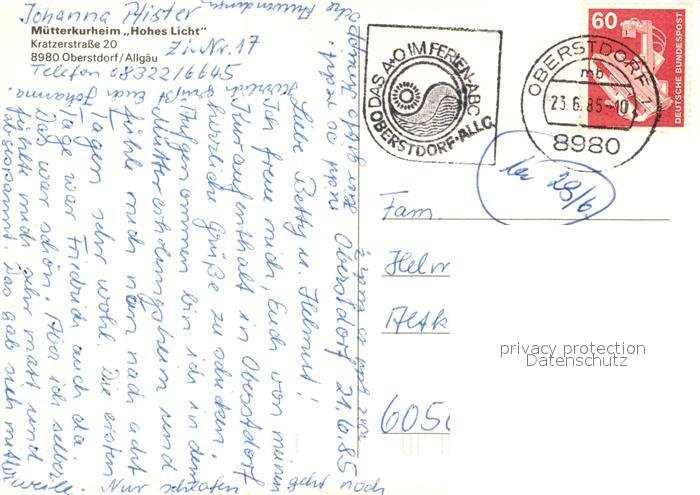 Johanna Pfister
Mütterkurheim „Hohes Licht"
Kratzerstraße 20
8980 Oberstdorf/Allgäu
Zi-Nr. 17
Telefon 08322/6645
Oberstdorf 21.6.85
Liebe Betty u. Helmut!
Ich freue mich, Euch von meinem
Kuraufenthalt in Oberstdorf
herzliche Grüße zu schicken.
Aufgenommen bin ich in dem
Müttererholungsheim und
fühle mich nun nach acht
Tagen sehr wohl. Die ersten
Tage war Friedrich auch da.
Das war schön. Aber ich selber
fühlte mich sehr matt und
abgespannt. Das gab sich mittler
weile. Nur schlafen geht noch
nicht so recht.
Herzlich grüßt Euch Johanna.
DAS A+O IM FERIEN-ABC
OBERSTDORF-ALLG.
OBERSTDORF
mb
23.6.85-10
8980
60
DEUTSCHE BUNDESPOST
28/6
Fam.
Helm
Altk
605
privacy protection
Datenschutz